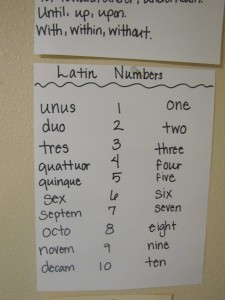 Until, up, upon.
With, within, without.
Latin Numbers
unus 1 one
duo 2 two
tres 3 three
quattuor 4 four
quinque 5 five
sex 6 six
septem 7 seven
octo 8 eight
novem 9 nine
decam 10 ten